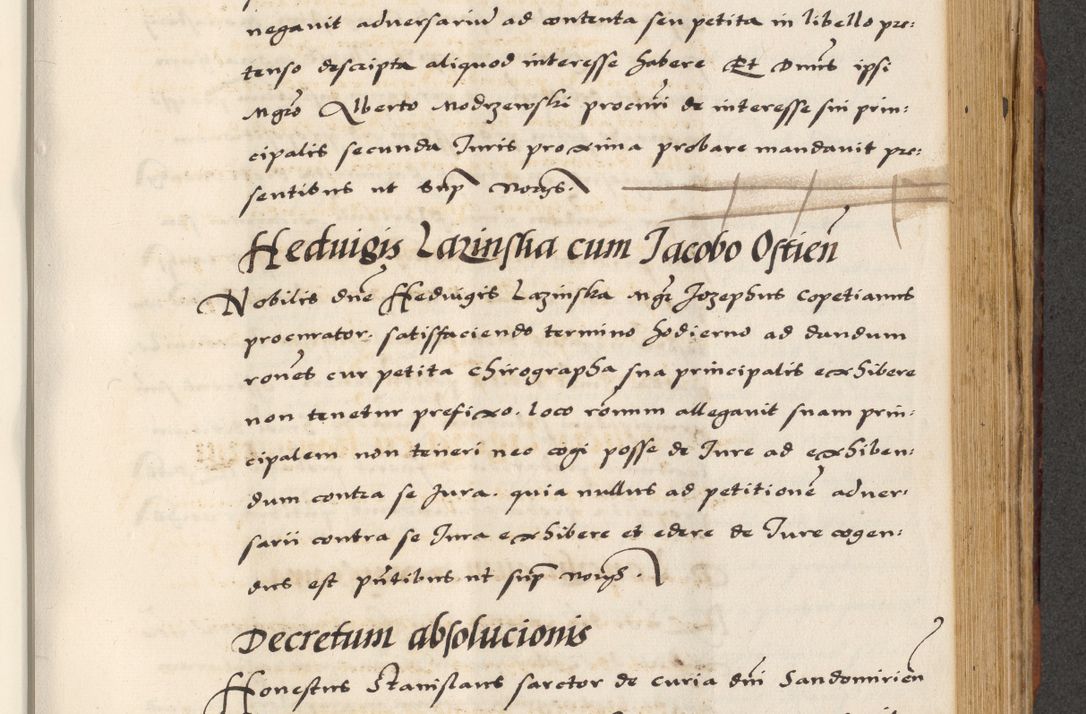 negauit adversariū ad contenta seu petita in libello pre:
tenso descripta aliquod interesse habere Et Dnus ipsi
Mgro Alberto Modrzewski procuri de interesse sui prin:
cipalis secunda Iuris proxima probare mandauit pre:
sentibus ut sup
Heduigis Lazinska cum Jacobo Ostien
Nobilis dne Heduigis Lazinska Mgr Jozephus Copetianus
procurator. satisfaciendo termino hodierno ad dandum
rones cur petita chirographa sua principalis exhibere
non tenetur prefixo. loco ronum allegauit suam prin:
cipalem non teneri nec cogi posse de Iure ad exhiben:
dum contra se Jura. quia nullus ad petitione adver:
sarii contra se Iura exhibere et edere de Iure cogen:
dus est pntibus ut sup
Decretum absolucionis
Honestus Stanislaus sartor de curia dni Sandomirien